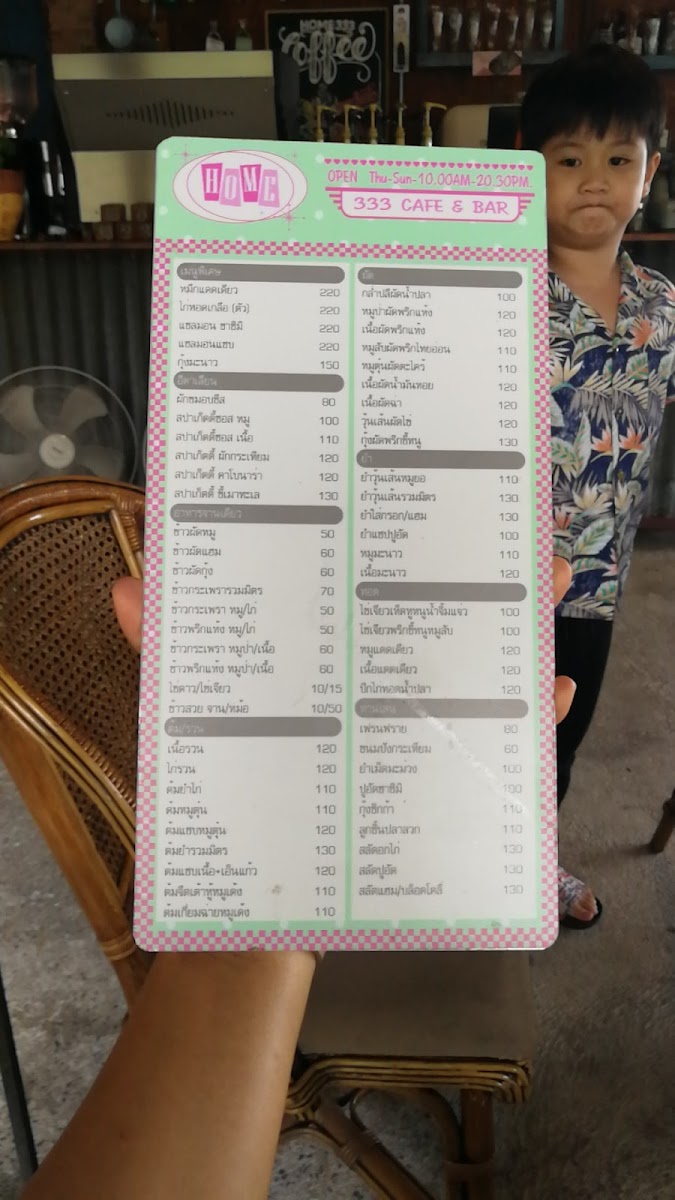 HOME 333
coffee
HOME
OPEN Thu-Sun-10.00AM-20.30PM.
333 CAFE & BAR
เมนูพิเศษ
หมึกแดดเดียว 220
ไก่ทอดเกลือ (ตัว) 220
แซลมอน ซาซิมิ 220
แซลมอนแซบ 220
กุ้งมะนาว 150
อิตาเลียน
ผักขมอบชีส 80
สปาเก็ตตี้ซอส หมู 100
สปาเก็ตตี้ซอส เนื้อ 110
สปาเก็ตตี้ ผักกระเทียม 120
สปาเก็ตตี้ คาโบนาร่า 120
สปาเก็ตตี้ ขี้เมาทะเล 130
อาหารจานเดียว
ข้าวผัดหมู 50
ข้าวผัดแฮม 60
ข้าวผัดกุ้ง 60
ข้าวกระเพรารวมมิตร 70
ข้าวกระเพรา หมู/ไก่ 50
ข้าวพริกแห้ง หมู/ไก่ 50
ข้าวกระเพรา หมูป่า/เนื้อ 60
ข้าวพริกแห้ง หมูป่า/เนื้อ 60
ไข่ดาว/ไข่เจียว 10/15
ข้าวสวย จาน/หม้อ 10/50
ต้ม/รวน
เนื้อรวน 120
ไก่รวน 120
ต้มยำไก่ 110
ต้มหมูตุ๋น 110
ต้มแซบหมูตุ๋น 120
ต้มยำรวมมิตร 130
ต้มแซบเนื้อ+เอ็นแก้ว 120
ต้มจืดเต้าหู้หมูเด้ง 110
ต้มเกี่ยมฉ่ายหมูเด้ง 110
ผัด
กล่ำปลีผัดน้ำปลา 100
หมูป่าผัดพริกแห้ง 120
เนื้อผัดพริกแห้ง 120
หมูสับผัดพริกไทยอ่อน 110
หมูตุ๋นผัดตะไคร้ 110
เนื้อผัดน้ำมันหอย 120
เนื้อผัดฉ่า 120
วุ้นเส้นผัดไข่ 120
กุ้งผัดพริกขี้หนู 130
ยำ
ยำวุ้นเส้นหมูยอ 110
ยำวุ้นเส้นรวมมิตร 130
ยำไส้กรอก/แฮม 130
ยำแซปปูอัด 100
หมูมะนาว 110
เนื้อมะนาว 120
ทอด
ไข่เจียวเห็ดหูหนูน้ำจิ้มแจ่ว 100
ไข่เจียวพริกขี้หนูหมูสับ 100
หมูแดดเดียว 120
เนื้อแดดเดียว 120
ปีกไก่ทอดน้ำปลา 120
ทานเล่น
เฟรนฟราย 80
ขนมปังกระเทียม 60
ยำเม็ดมะม่วง 100
ปูอัดซาซิมิ 100
กุ้งซิกก้า 110
ลูกชิ้นปลาลวก 110
สลัดอกไก่ 130
สลัดปูอัด 130
สลัดแฮม/บล็อคโคลี่ 130